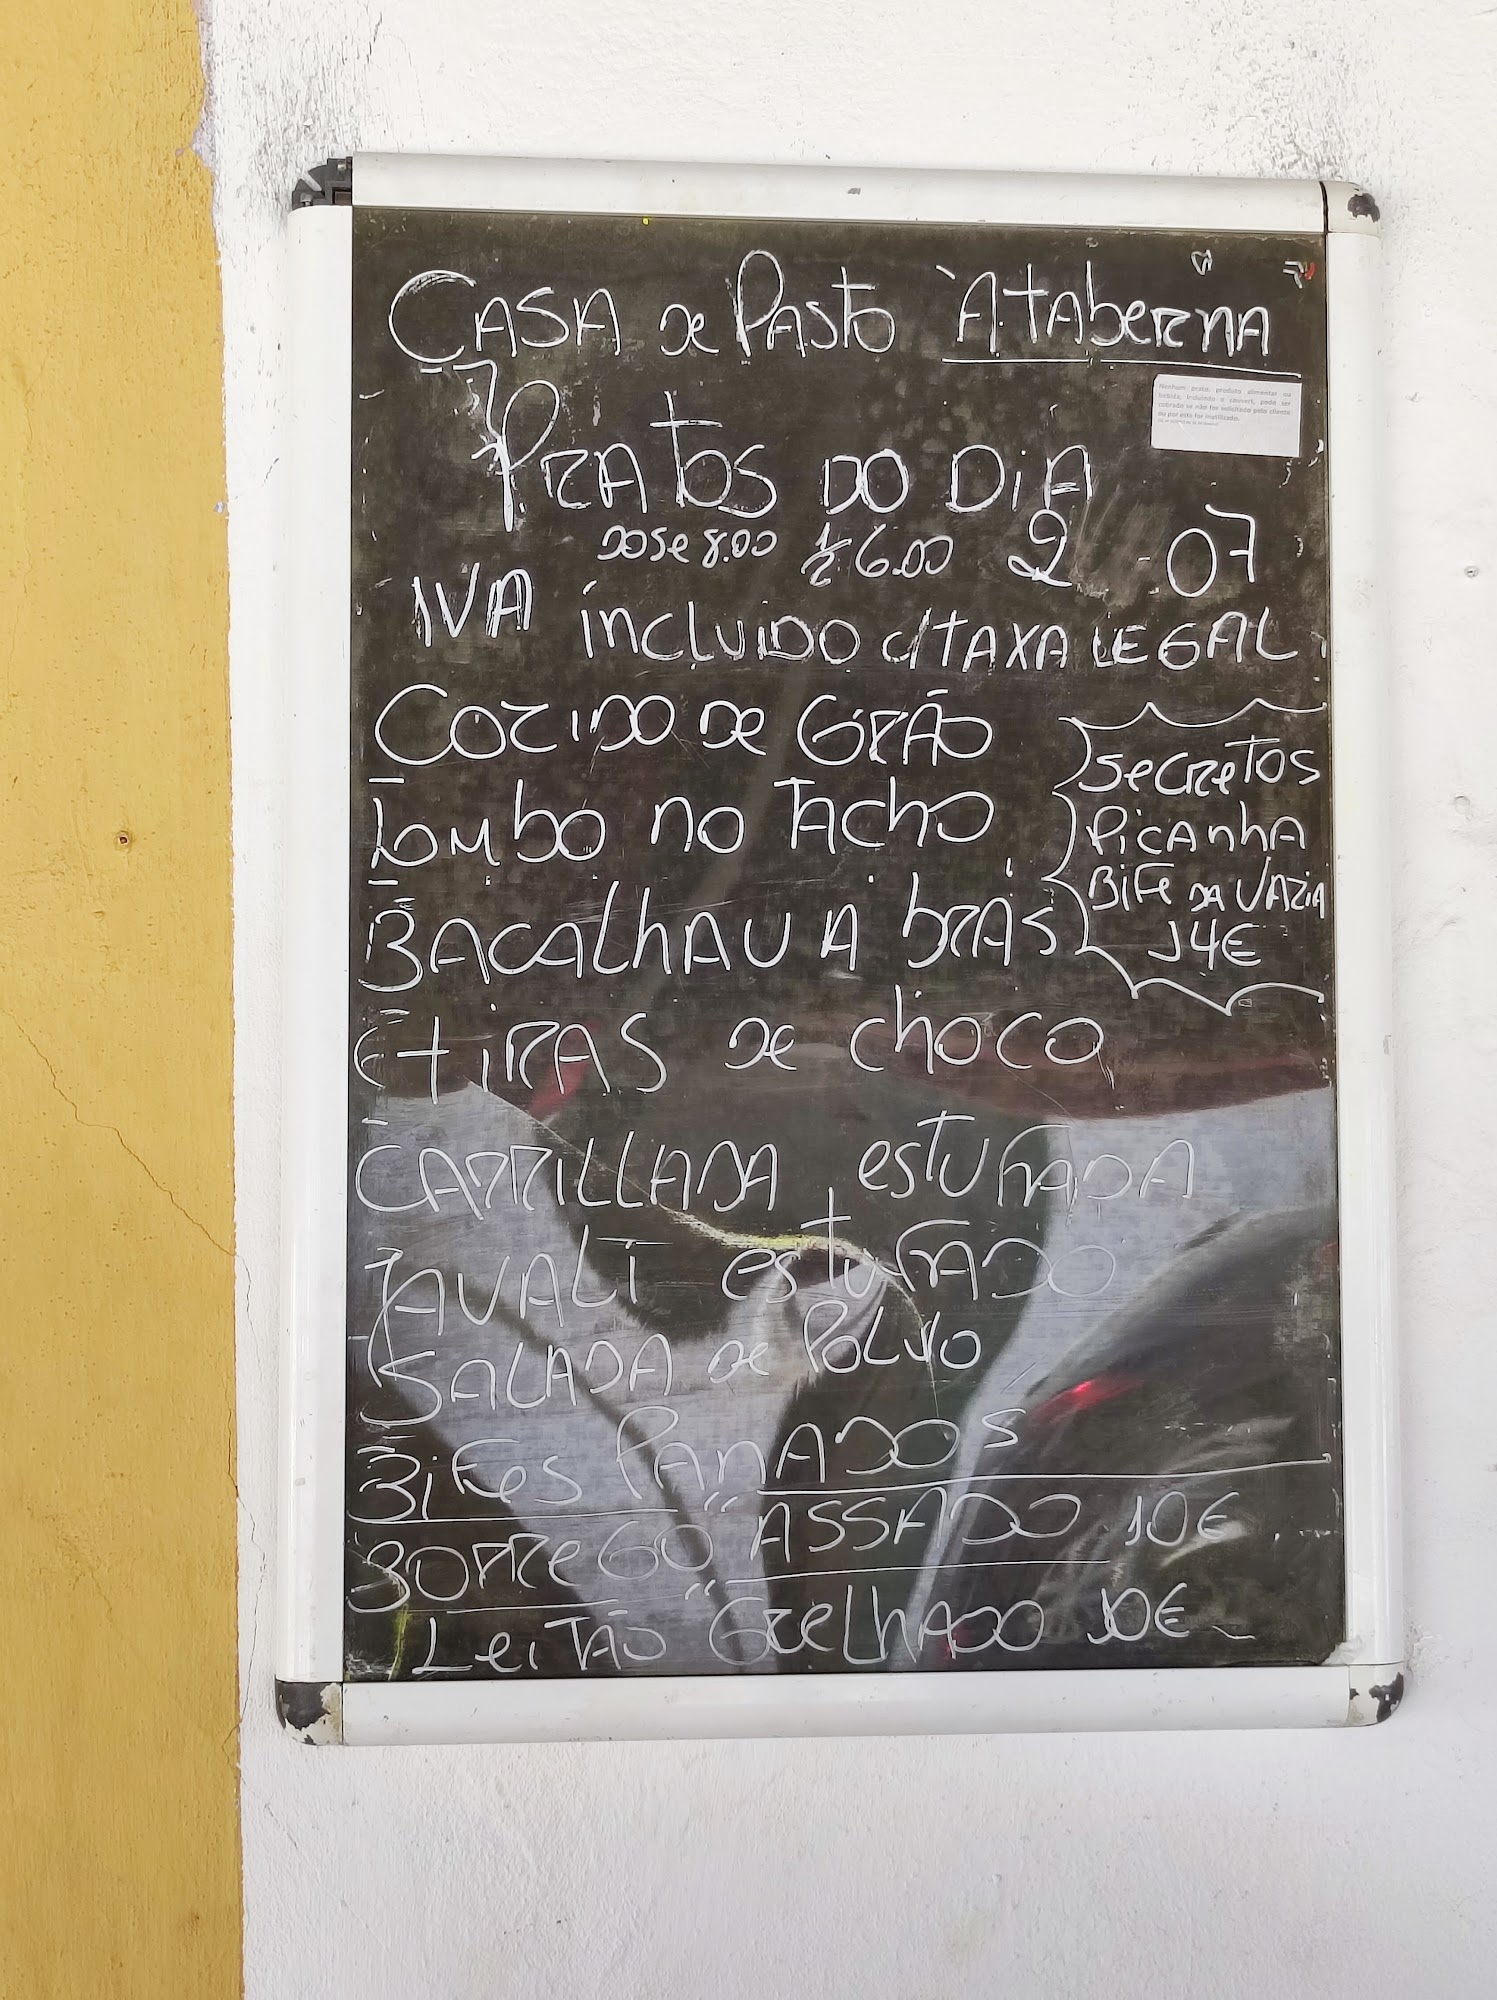 CASA de PASTO "A TAberNA
PRATOS DO DIA
DOSE 8.00 1/2 6.00 2 - 07
IVA INCLUIDO C/TAXA LEGAL
COZIDO DE GRÃO
LOMBO NO TACHO
BACALHAU A BRÁS
TIRAS DE CHOCO
CARRILLADA ESTUFADA
JAVALI ESTUFADO
SALADA DE POLVO
BIFES PANADOS
BORREGO ASSADO 10€
LEITÃO GRELHADO 10€
SECRETOS
PICANHA
BIFE DA VAZIA
14€
Nenhum prato, produto alimentar ou
bebida, incluindo o couvert, pode ser
cobrado se não for solicitado pelo cliente
ou por este for inutilizado.